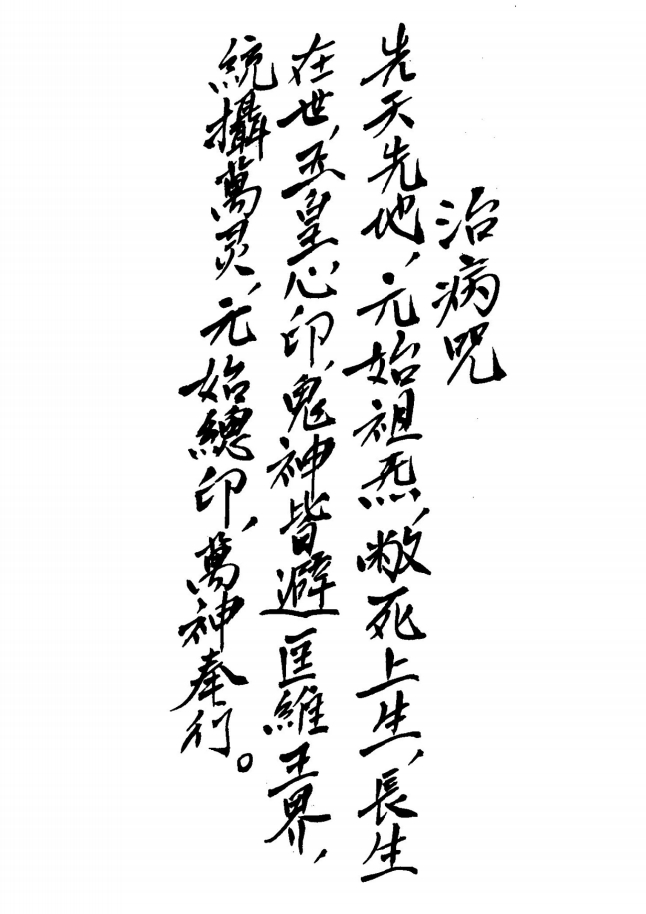 治病咒
先天先地，元始祖炁，敝死上生，長生
在世，玉皇心印，鬼神皆避，匡維王界，
統攝萬灵，元始總印，萬神奉行。